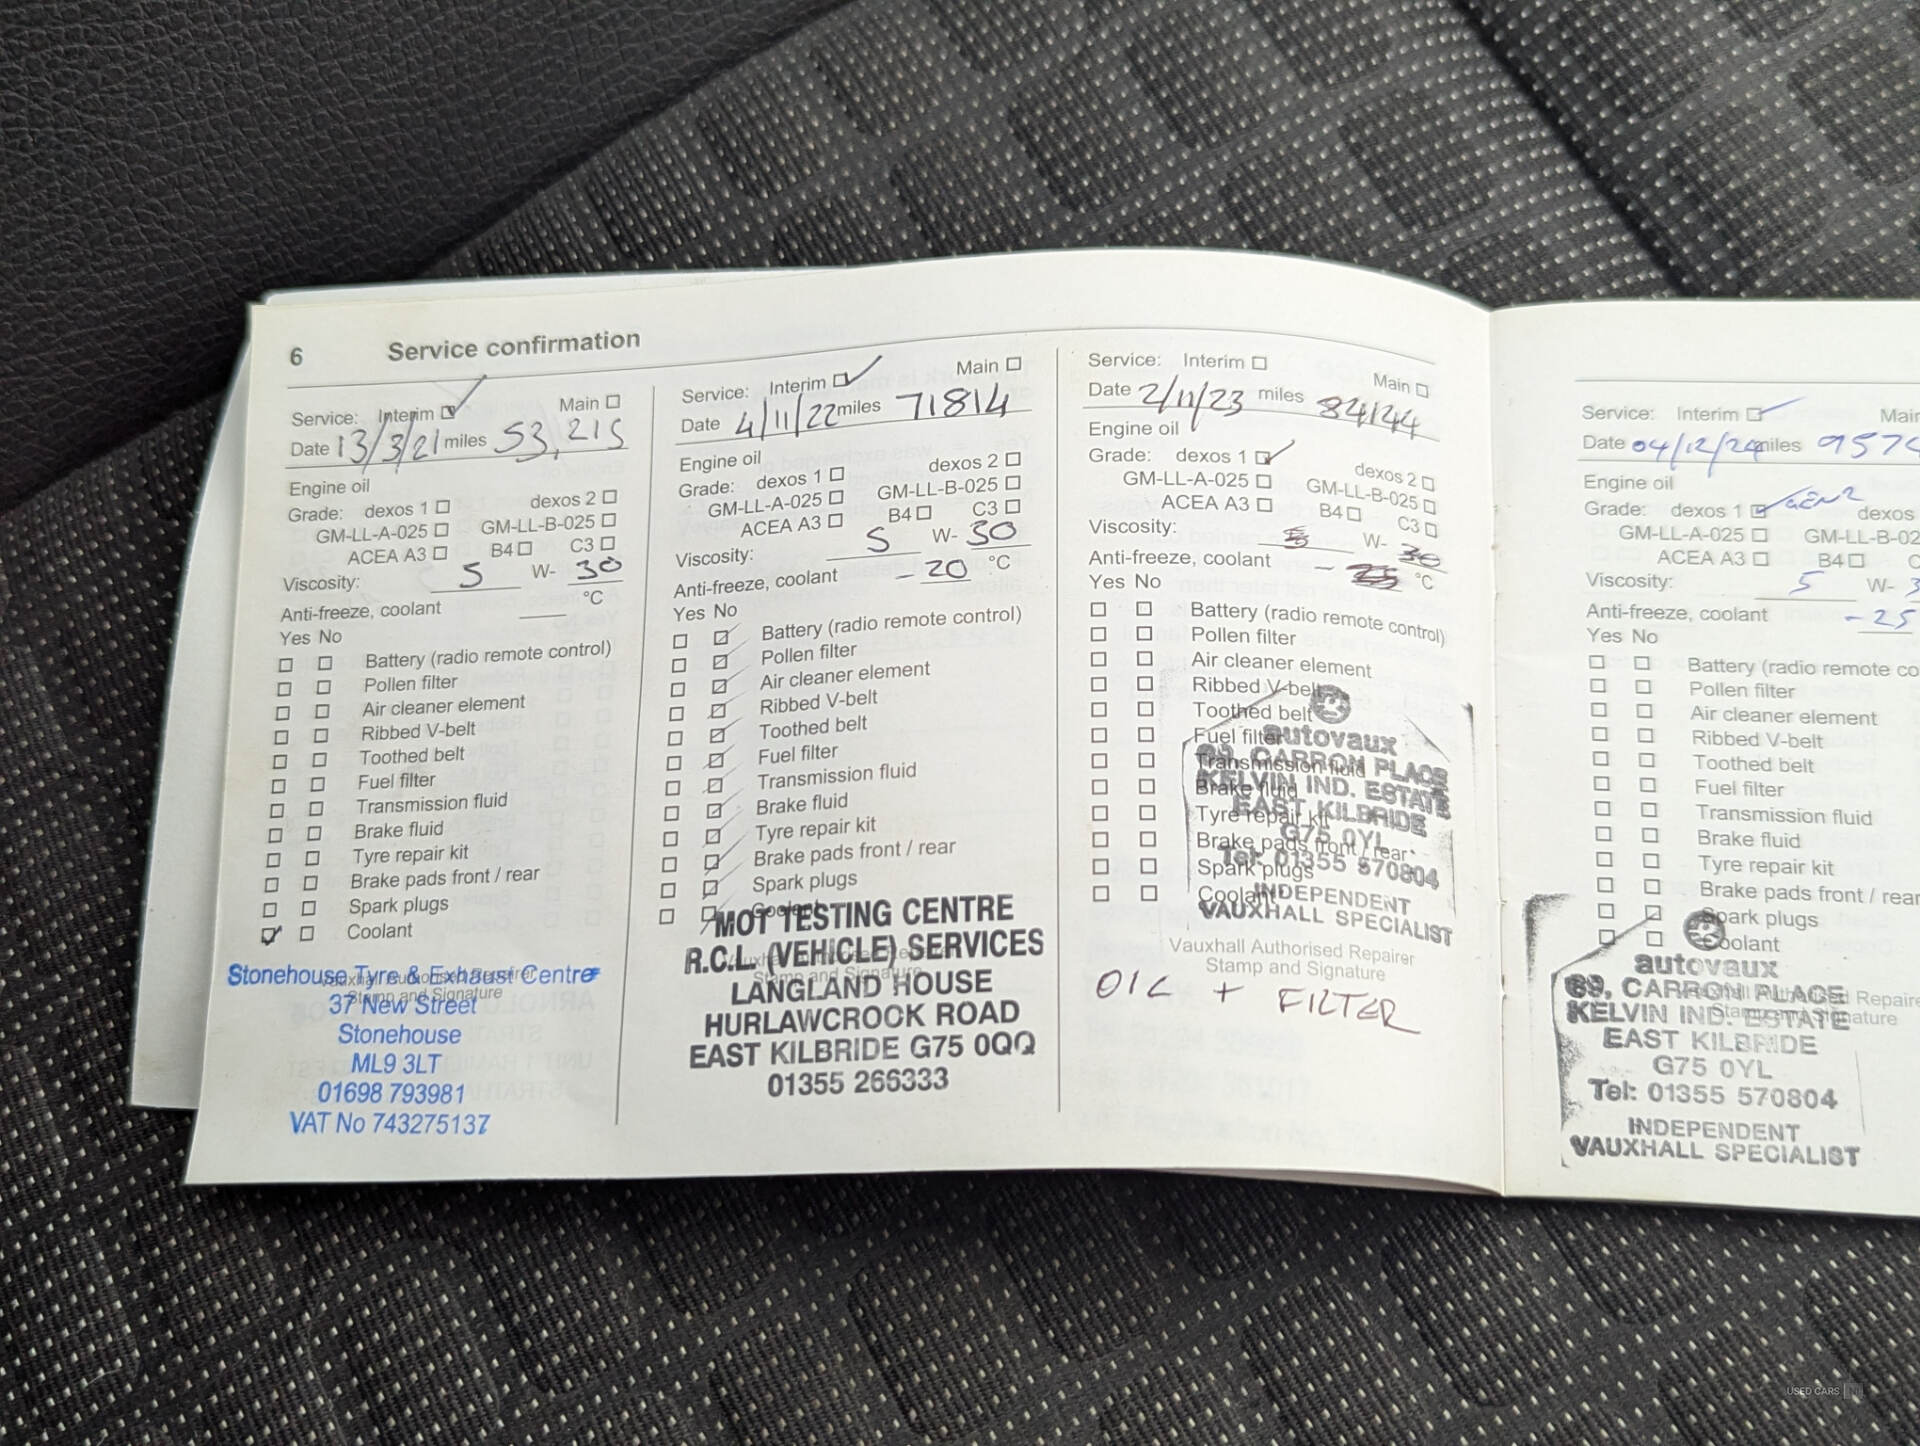 6 Service confirmation
Service: Interim Main
Date 13/3/21 miles 53,215
Engine oil
Grade: dexos 1 dexos 2
GM-LL-A-025 GM-LL-B-025
ACEA A3 B4 C3
Viscosity: 5 W- 30
Anti-freeze, coolant °C
Yes No
Battery (radio remote control)
Pollen filter
Air cleaner element
Ribbed V-belt
Toothed belt
Fuel filter
Transmission fluid
Brake fluid
Tyre repair kit
Brake pads front / rear
Spark plugs
Coolant
Vauxhall Authorised Repairer
Stamp and Signature
Stonehouse Tyre & Exhaust Centre
37 New Street
Stonehouse
ML9 3LT
01698 793981
VAT No 743275137
Service: Interim Main
Date 4/11/22 miles 71814
Engine oil
Grade: dexos 1 dexos 2
GM-LL-A-025 GM-LL-B-025
ACEA A3 B4 C3
Viscosity: 5 W- 30
Anti-freeze, coolant -20 °C
Yes No
Battery (radio remote control)
Pollen filter
Air cleaner element
Ribbed V-belt
Toothed belt
Fuel filter
Transmission fluid
Brake fluid
Tyre repair kit
Brake pads front / rear
Spark plugs
Coolant
Vauxhall Authorised Repairer
Stamp and Signature
MOT TESTING CENTRE
R.C.L. (VEHICLE) SERVICES
LANGLAND HOUSE
HURLAWCROOK ROAD
EAST KILBRIDE G75 0QQ
01355 266333
Service: Interim Main
Date 2/11/23 miles 84144
Engine oil
Grade: dexos 1 dexos 2
GM-LL-A-025 GM-LL-B-025
ACEA A3 B4 C3
Viscosity: 5 W- 30
Anti-freeze, coolant -25 °C
Yes No
Battery (radio remote control)
Pollen filter
Air cleaner element
Ribbed V-belt
Toothed belt
Fuel filter
Transmission fluid
Brake fluid
Tyre repair kit
Brake pads front / rear
Spark plugs
Coolant
autovaux
69, CARRON PLACE
KELVIN IND. ESTATE
EAST KILBRIDE
G75 0YL
Tel: 01355 570804
INDEPENDENT
VAUXHALL SPECIALIST
Vauxhall Authorised Repairer
Stamp and Signature
OIL + FILTER
Service: Interim Main
Date 04/12/24 miles 9574
Engine oil
Grade: dexos 1 GEN2 dexos
GM-LL-A-025 GM-LL-B-02
ACEA A3 B4 C
Viscosity: 5 W- 3
Anti-freeze, coolant -25
Yes No
Battery (radio remote co
Pollen filter
Air cleaner element
Ribbed V-belt
Toothed belt
Fuel filter
Transmission fluid
Brake fluid
Tyre repair kit
Brake pads front / rear
Spark plugs
Coolant
Authorised Repaire
Stamp and Signature
autovaux
69, CARRON PLACE
KELVIN IND. ESTATE
EAST KILBRIDE
G75 0YL
Tel: 01355 570804
INDEPENDENT
VAUXHALL SPECIALIST
USED CARS NI